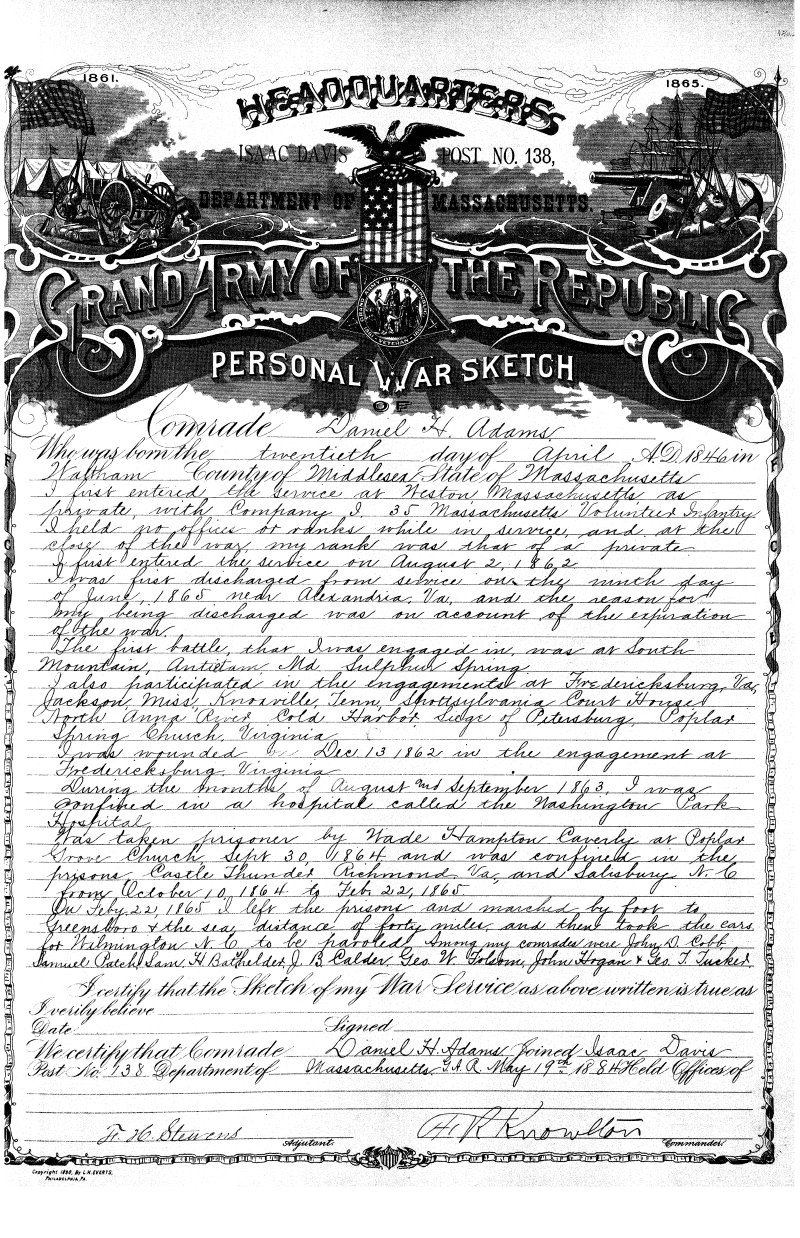 1861.
1865.
HEADQUARTERS
ISAAC DAVIS POST NO. 138,
DEPARTMENT OF MASSACHUSETTS.
GRAND ARMY OF THE REPUBLIC
VETERAN
PERSONAL WAR SKETCH
OF
Comrade Daniel H. Adams.
Who was born the twentieth day of April A.D. 1846 in
Waltham County of Middlesex State of Massachusetts
I first entered the service at Weston Massachusetts as
private with Company I, 35 Massachusetts Volunteer Infantry
I held no offices or ranks while in service, and at the
close of the war my rank was that of a private
I first entered the service on August 2, 1862
I was first discharged from service on the ninth day
of June, 1865 near Alexandria, Va, and the reason for
my being discharged was on account of the expiration
of the war.
The first battle, that I was engaged in, was at South
Mountain, Antietam Md Sulphur Spring
I also participated in the engagements at Fredericksburg, Va,
Jackson, Miss, Knoxville, Tenn, Spottsylvania Court House
North Anna River, Cold Harbor Siege of Petersburg, Poplar
Spring Church, Virginia
I was wounded Dec. 13 1862 in the engagement at
Fredericksburg Virginia
During the months of August and September 1863, I was
confined in a hospital called the Washington Park
Hospital
Was taken prisoner by Wade Hampton Caverly at Poplar
Grove Church, Sept 30, 1864 and was confined in the
prisons, Castle Thunder Richmond Va, and Salisbury N. C
from October 10, 1864 to Feb. 22, 1865
On Feby 22, 1865 I left the prisons and marched by foot to
Greensboro & the sea, distance of forty miles, and then took the cars
for Wilmington N. C to be paroled. Among my comrades were John D. Cobb,
Samuel Patch, Sam. H Bathelder, J. B Calder, Geo. W. Folsom, John Hogan & Geo. T. Tucker.
I certify that the Sketch of my War Service as above written is true as
I verily believe
Date Signed
We certify that Comrade Daniel H. Adams Joined Isaac Davis
Post No. 138 Department of Massachusetts, G.A.R. May 19th 1884 Held Offices of
F. H. Stevens Adjutant. F R Knowlton Commander.
Copyright 1890, By L.H. EVERTS,
PHILADELPHIA, PA.